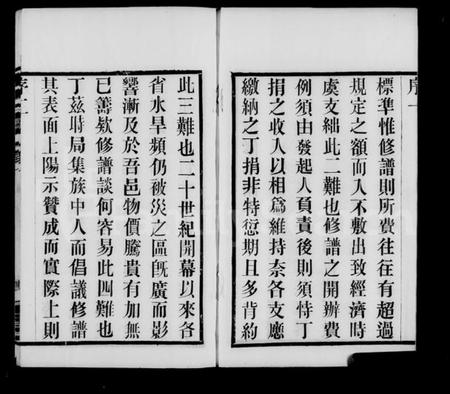 序一
標準惟修譜則所費往往有超過
規定之額而入不敷出致經濟時
虞支絀此二難也修譜之開辦費
例須由發起人負責後則須恃丁
捐之收入以相爲維持奈各支應
繳納之丁捐非特愆期且多背約
此三難也二十世紀開幕以來各
省水旱頻仍被災之區旣廣而影
響漸及於吾邑物價騰貴有加無
已籌欵修譜談何容易此四難也
丁茲時局集族中人而倡議修譜
其表面上陽示贊成而實際上則
序二